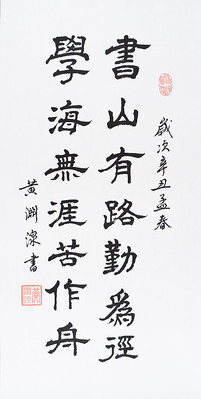 歲次辛丑孟春
書山有路勤爲徑
學海無涯苦作舟
黃淵 書